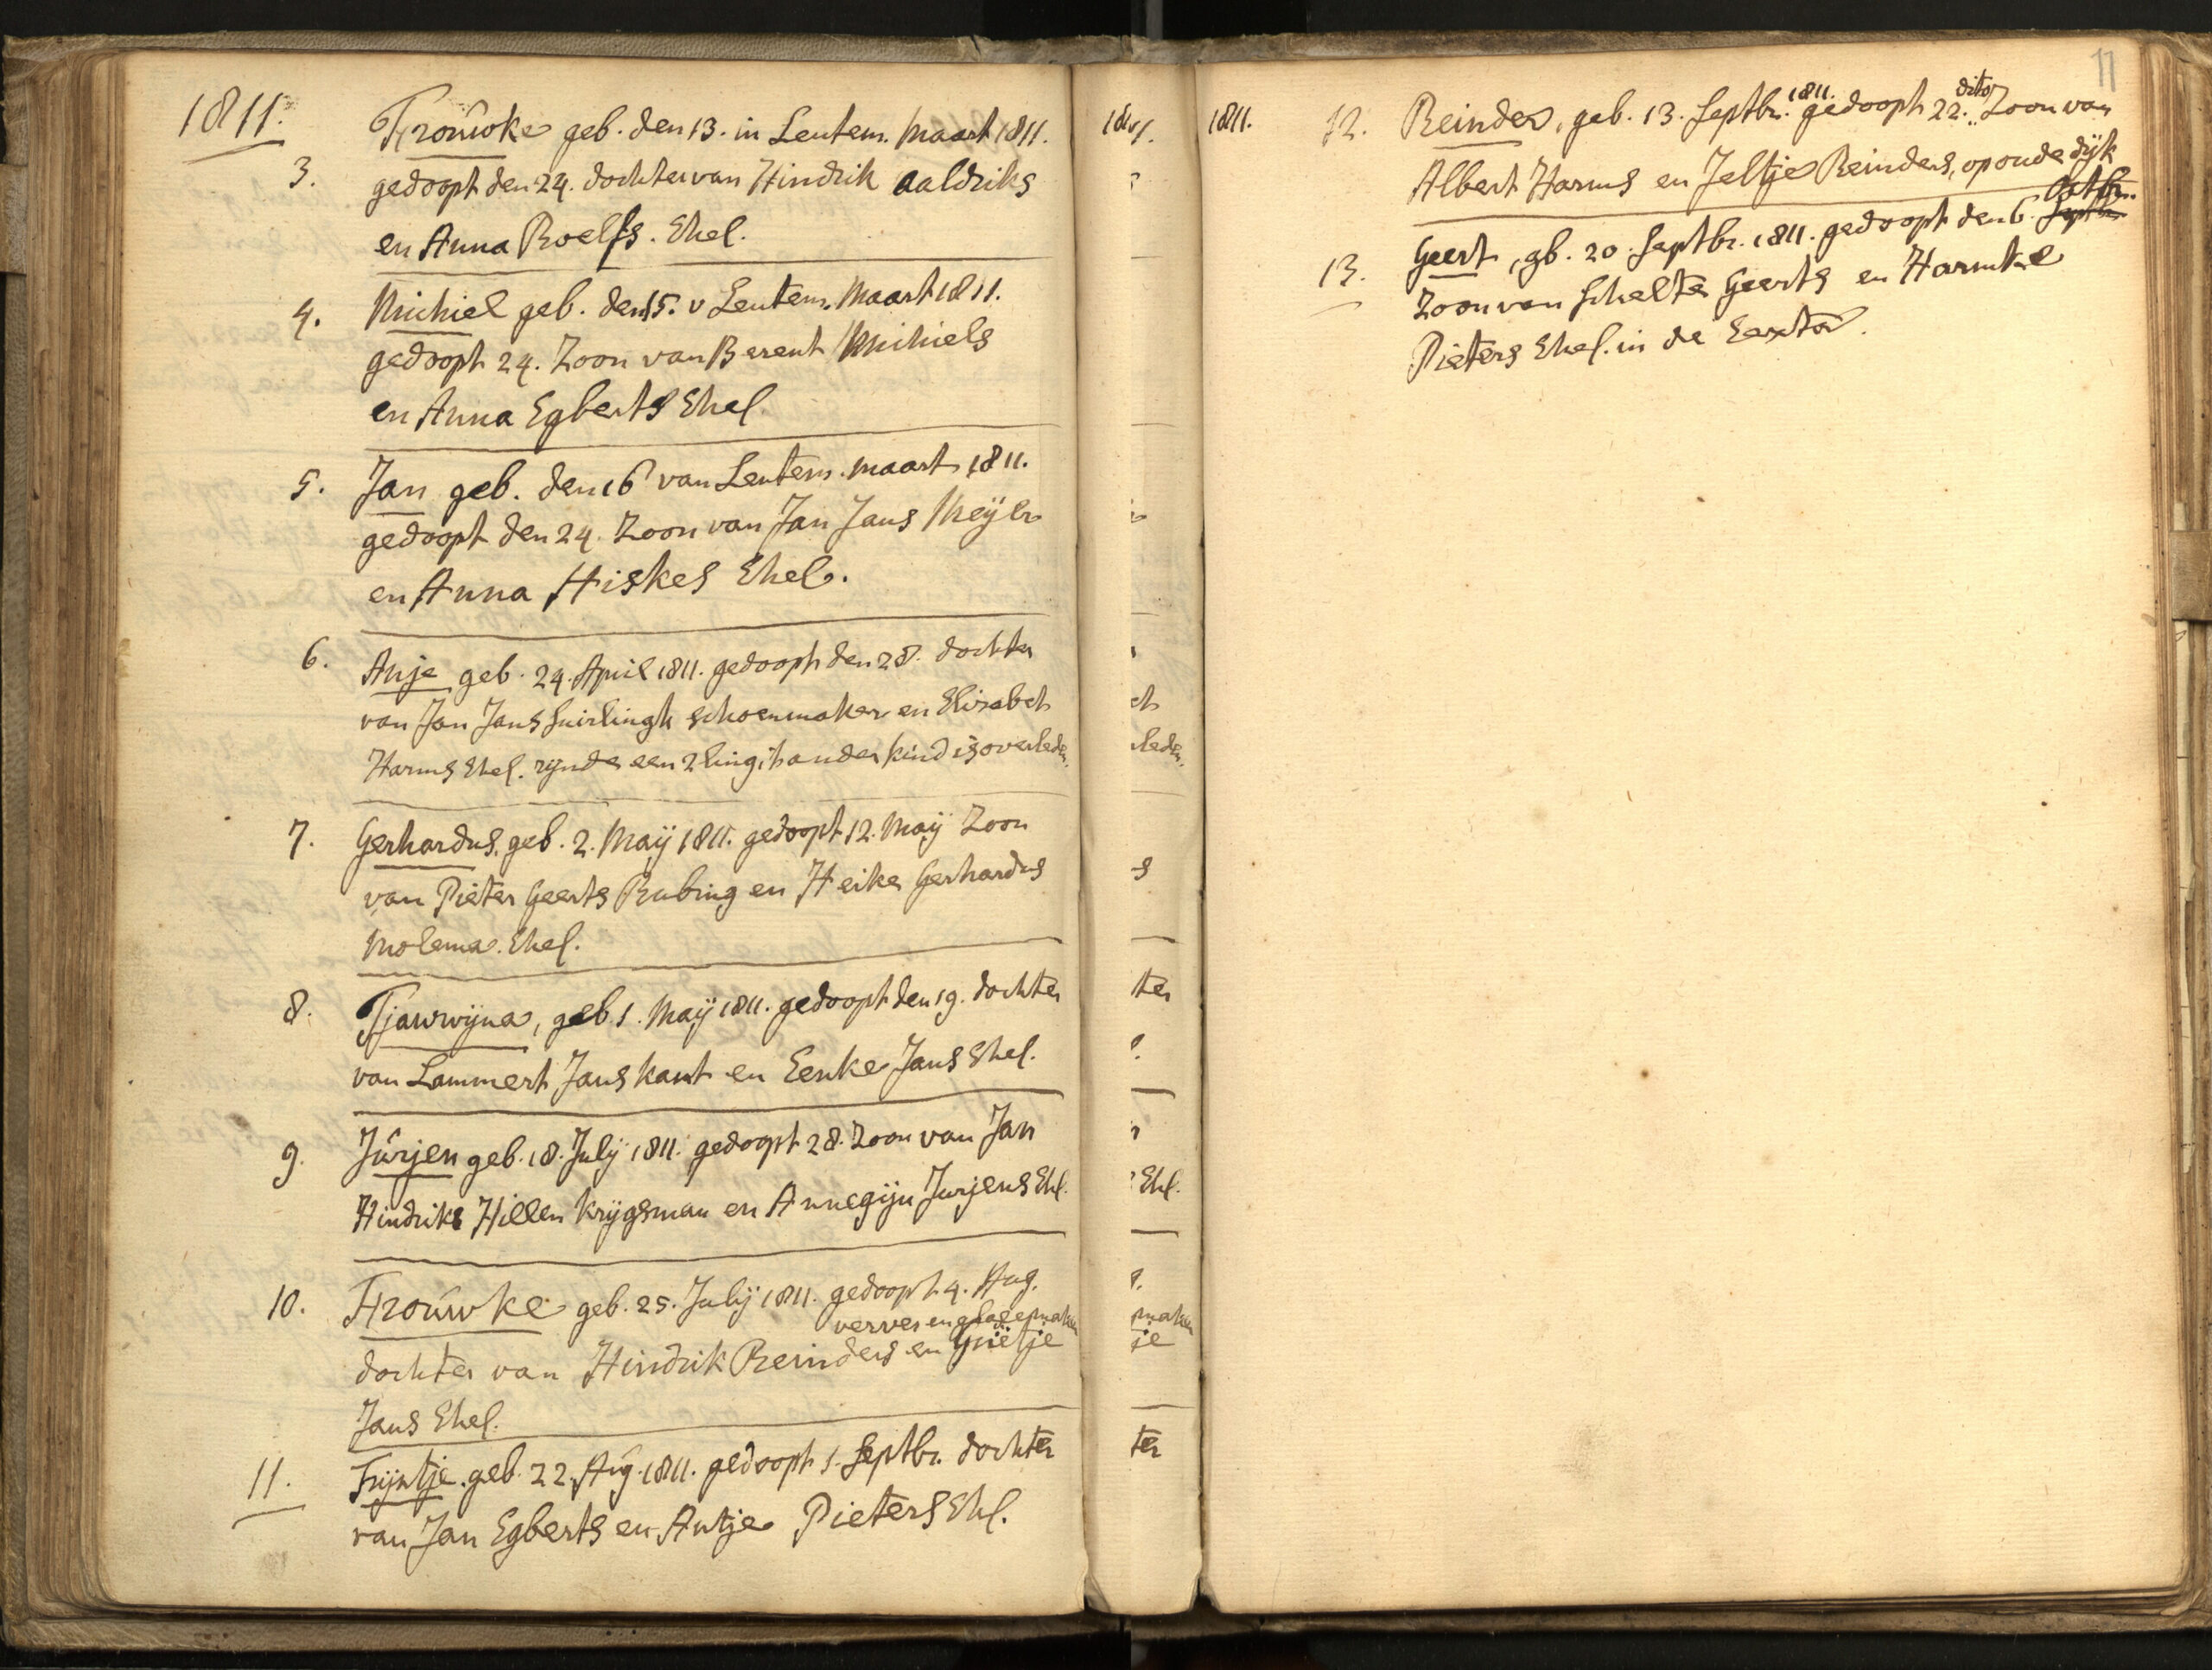 1811.
Trouwke geb. den 13. in Lentem. Maart 1811.
3. gedoopt den 24. dochter van Hindrik Aaldriks
en Anna Roelfs. Ehel.
4. Michiel geb. den 15. v Lentem. Maart 1811.
gedoopt 24. Zoon van Berent Michiels
en Anna Egberts Ehel.
5. Jan geb. den 16 van Lentem. Maart 1811.
gedoopt den 24. Zoon van Jan Jans Meijer
en Anna Hiskes Ehel.
6. Anje geb. 24. April 1811. gedoopt den 28. dochter
van Jan Jans schoenmaker en Elisabeth
Harms Ehel. zijnde een 2ling, 't ander kind is overleden.
7. Gerhardus, geb. 2. Maij 1811. gedoopt 12. Maij Zoon
van Pieter Geerts Rubing en Heike Gerhardus
Molema. Ehel.
8. Tjawwijna, geb. 1. Maij 1811. gedoopt den 19. dochter
van Lammert Jans kant en Eenke Jans Ehel.
9. Jûrjen geb. 18. Julij 1811. gedoopt 28. Zoon van Jan
Hindriks Hillen krijgsman en Annegijn Jurjens Ehl.
10. Trouwke geb. 25. Julij 1811. gedoopt 4. Aug.
verver en glasemaker
dochter van Hindrik Reinders en Grietje
Jans Ehel.
11. Trijntje. geb. 22. Aug. 1811. gedoopt 1. Septbr. dochter
van Jan Egberts en Antje Pieters Ehl.
11
1811.
1811. dito
12. Reinder, geb. 13. Septbr. gedoopt 22. Zoon van
Albert Harms en Jeltje Reinders, op oude dijk
Octbr.
13. Geert, gb. 20. Septbr. 1811. gedoopt den 6. Septbr.
Zoon van Schelte Geerts en Harmke
Pieters Ehel. in de Eexta.